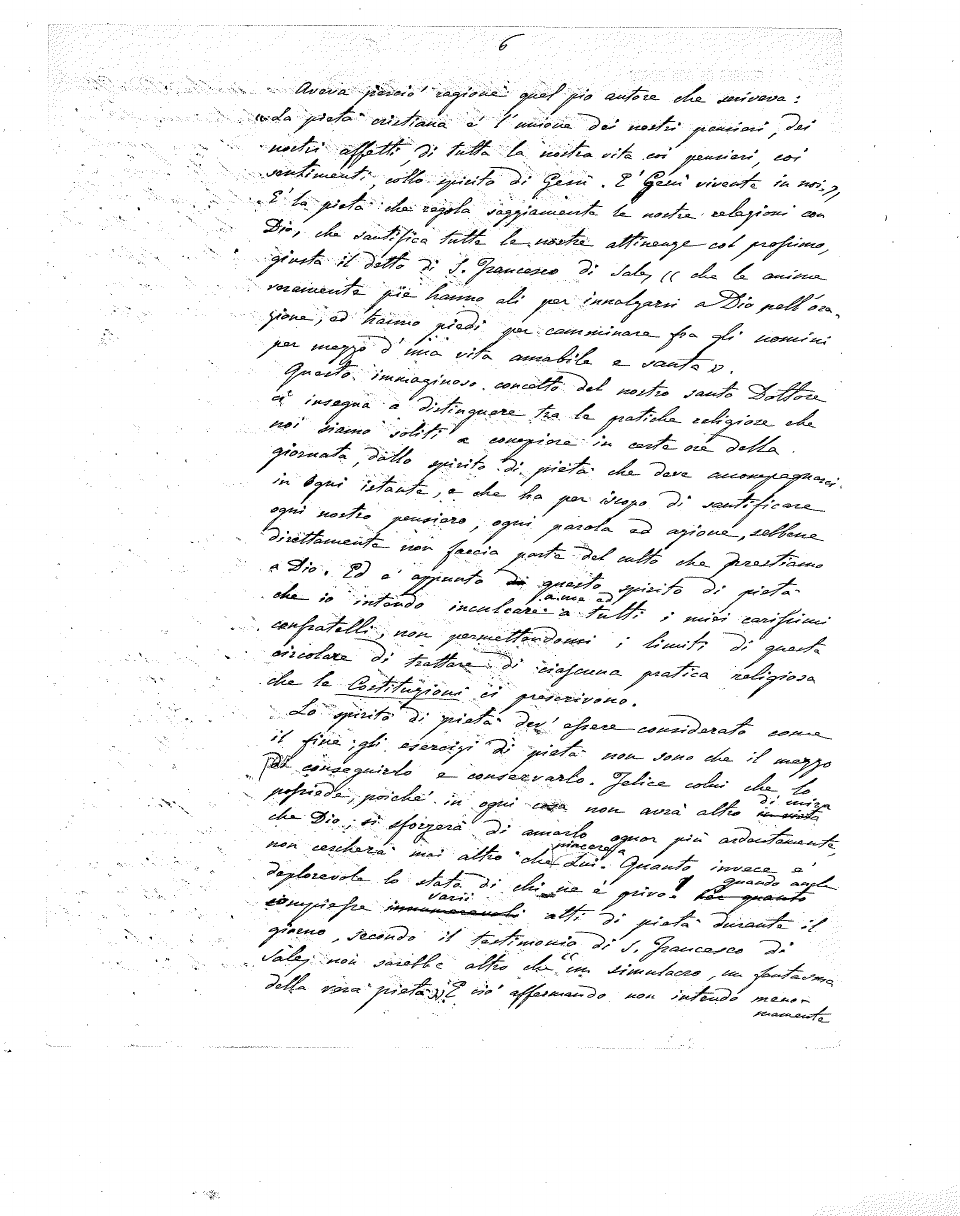 6
Aveva perciò ragione quel pio autore che scriveva:
«La pietà cristiana è l'unione dei nostri pensieri, dei
nostri affetti, di tutta la nostra vita coi pensieri, coi
sentimenti, collo spirito di Gesù. È Gesù vivente in noi.»
È la pietà che regola saggiamente le nostre relazioni con
Dio, che santifica tutte le nostre attinenze col prossimo,
giusta il detto di S. Francesco di Sales « che le anime
veramente pie hanno ali per innalzarsi a Dio nell'ora-
zione, ed hanno piedi per camminare fra gli uomini
per mezzo d'una vita amabile e santa».
Questo immaginoso concetto del nostro santo Dottore
ci insegna a distinguere tra le pratiche religiose che
noi siamo soliti a compiere in certe ore della
giornata, dallo spirito di pietà che deve accompagnarci
in ogni istante, e che ha per iscopo di santificare
ogni nostro pensiero, ogni parola ed azione, sebbene
direttamente non faccia parte del culto che prestiamo
a Dio. Ed è appunto questo spirito di pietà
che io intendo inculcare a me ed a tutti i miei carissimi
confratelli, non permettendomi i limiti di questa
circolare di trattare di ciascuna pratica religiosa
che le Costituzioni ci prescrivono.
Lo spirito di pietà dev'essere considerato come
il fine; gli esercizi di pietà non sono che il mezzo
di conseguirlo e conservarlo. Felice colui che lo
possiede, poiché in ogni cosa non avrà altro in vista di mira
che Dio, si sforzerà di amarlo ognor più ardentemente,
non cercherà mai altro che piacere a Lui. Quanto invece è
deplorevole lo stato di chi ne è privo! Per quanto quando anche
compiesse innumerevoli varii atti di pietà durante il
giorno, secondo il testimonio di S. Francesco di
Sales non sarebbe altro che "un simulacro, un fantasma
della vera pietà». E ciò affermando non intendo menom-
mamente